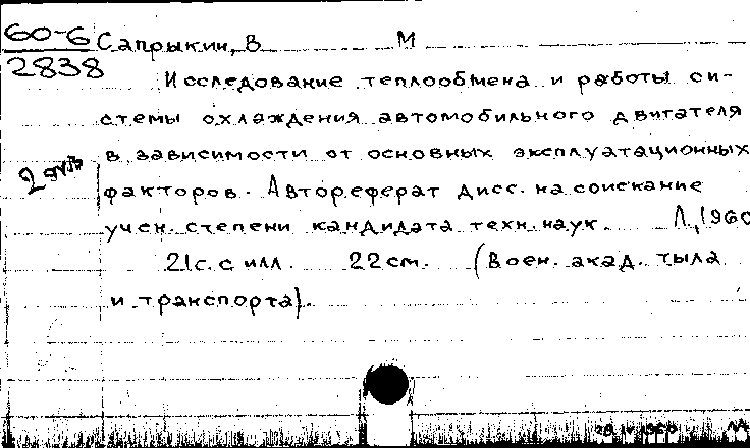 60-6 Сапрыкин, В М
2838
Исследование теплообмена и работы си-
стемы охлаждения автомобильного двигателя
в зависимости от основных эксплуатационных
2 экз
факторов. Автореферат дисс. на соискание
учен. степени кандидата техн. наук. Л, 1960
21с. с илл. 22 см. (Воен. акад. тыла
и транспорта).